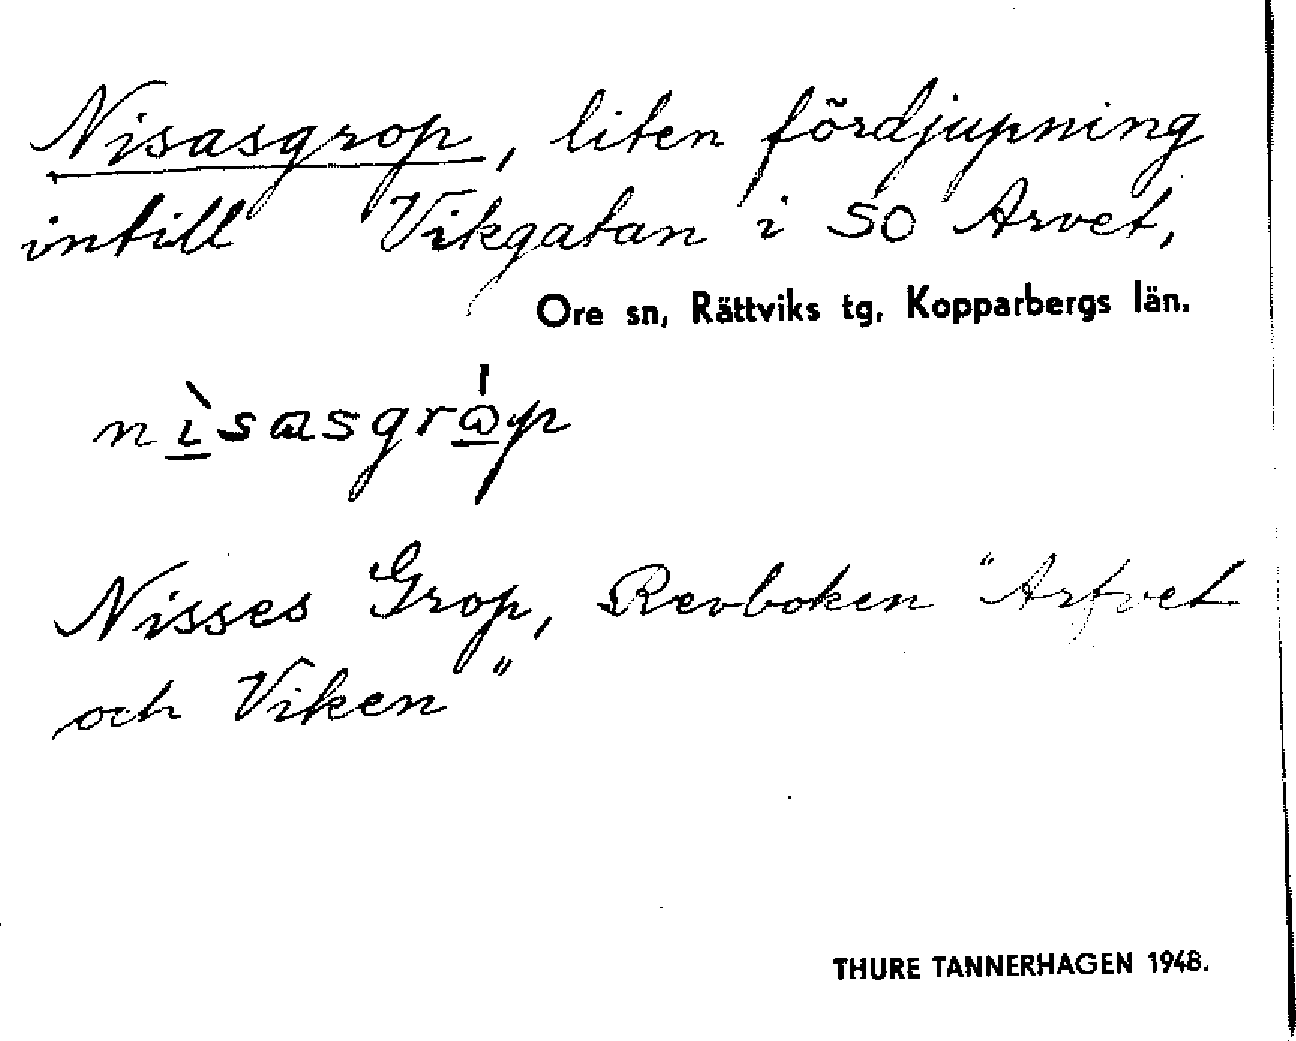 Nisasgrop, liten fördjupning
intill Vikgatan i SO Arvet,
Ore sn, Rättviks tg, Kopparbergs län.
nìsasgrɷ́p
Nisses Grop, Revboken "Arfvet
och Viken"
THURE TANNERHAGEN 1948.